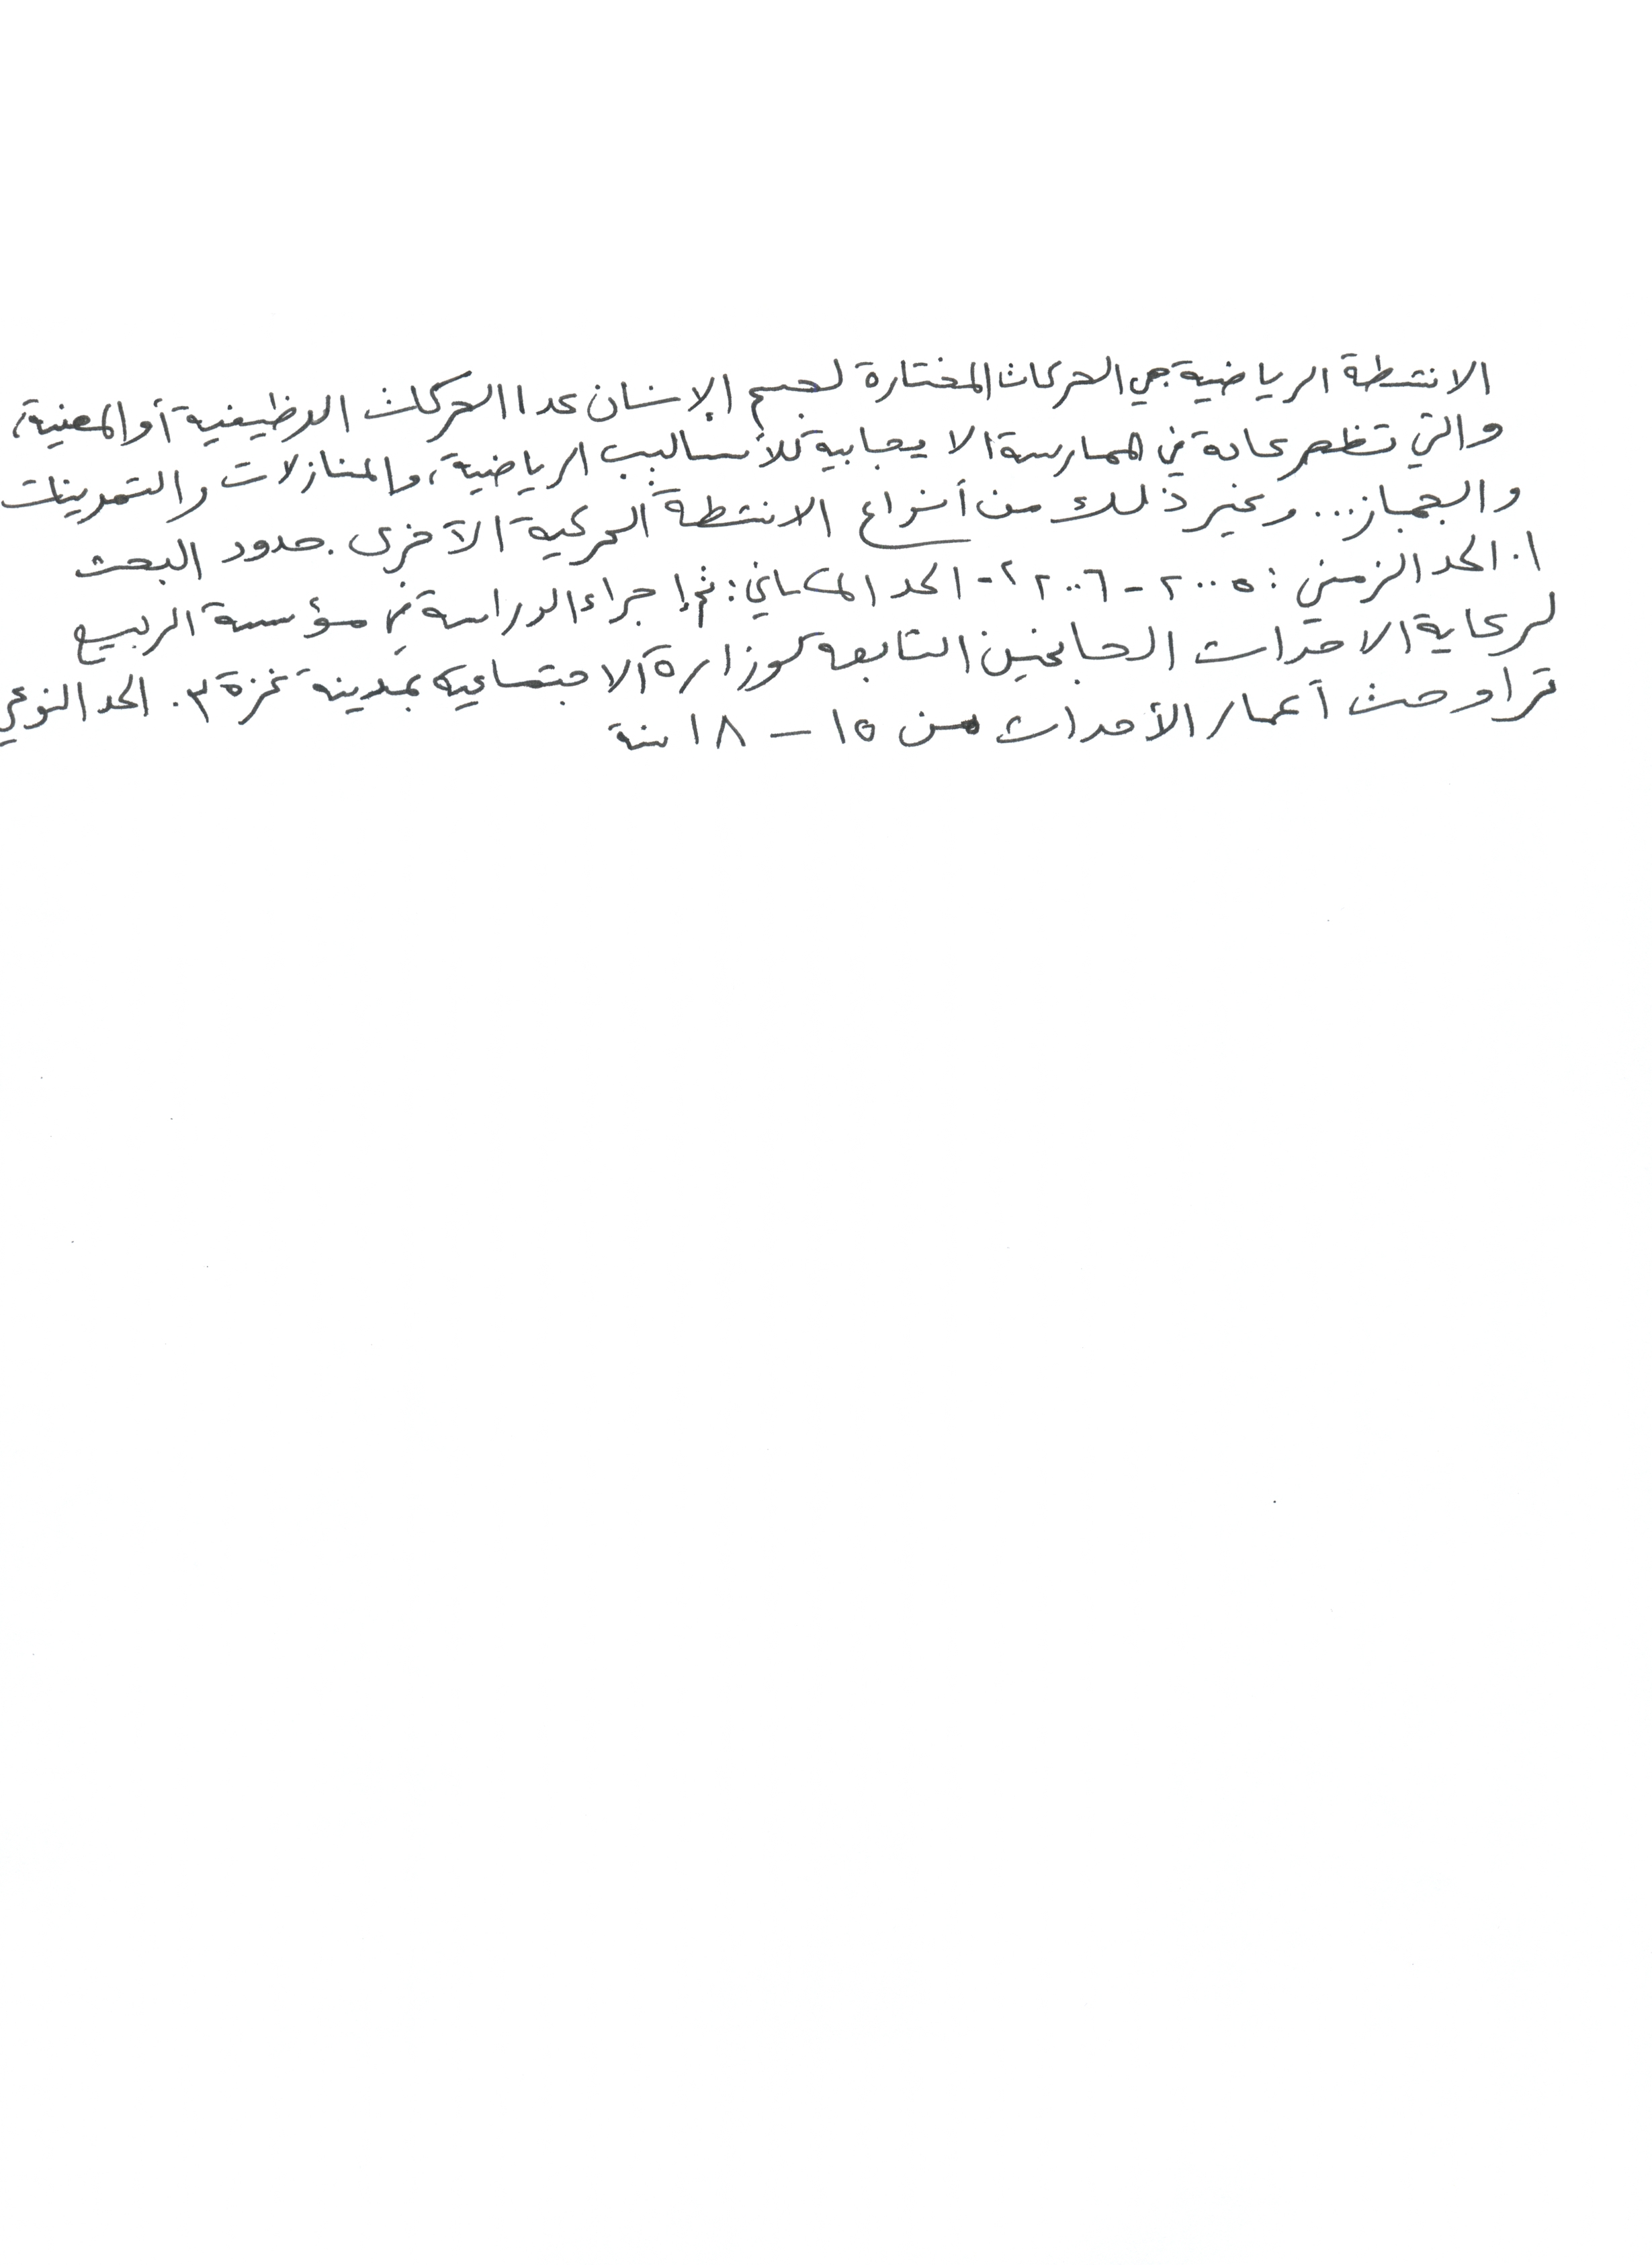 الانشطة الرياضية هي الحركات المختارة لجسم الإنسان عدا الحركات الوظيفية أو المهنية،
والتي تظهر عادة في الممارسة الايجابية للأساليب الرياضية، والمنازلات والتمرينات
والجمباز... وغير ذلك من أنواع الانشطة الحركية الآخرى. حدود البحث
١. الحد الزمني : ٢٠٠٥ - ٢٠٠٦ ٢- الحد المكاني: تم إجراء الدراسة في مؤسسة الربيع
لرعاية الاحداث الجانحين التابعه لوزارة الاجتماعية بمدينة غزة ٣. الحد النوعي
تراوحت أعمار الأحداث من ١٥ - ١٨ سنة